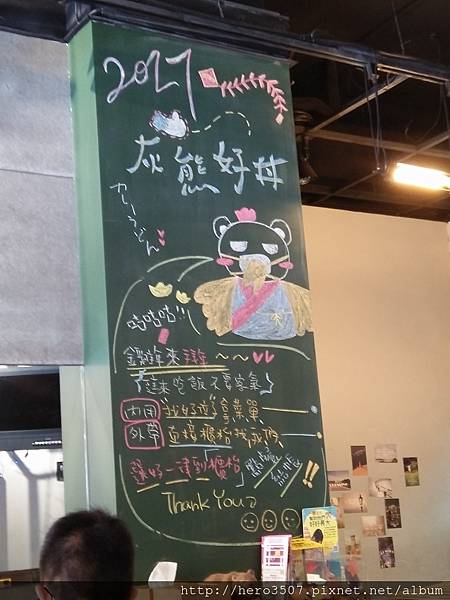 2017
灰熊好丼
カレーうどん
咕咕咕!!
錢滾錢來拜年~~
進來吃飯不要客氣
內用 "我好啦"拿菜單
外帶 直接櫃枱找我們
選好一律到櫃枱
點餐
結帳
Thank You
http://hero3507.pixnet.net/album